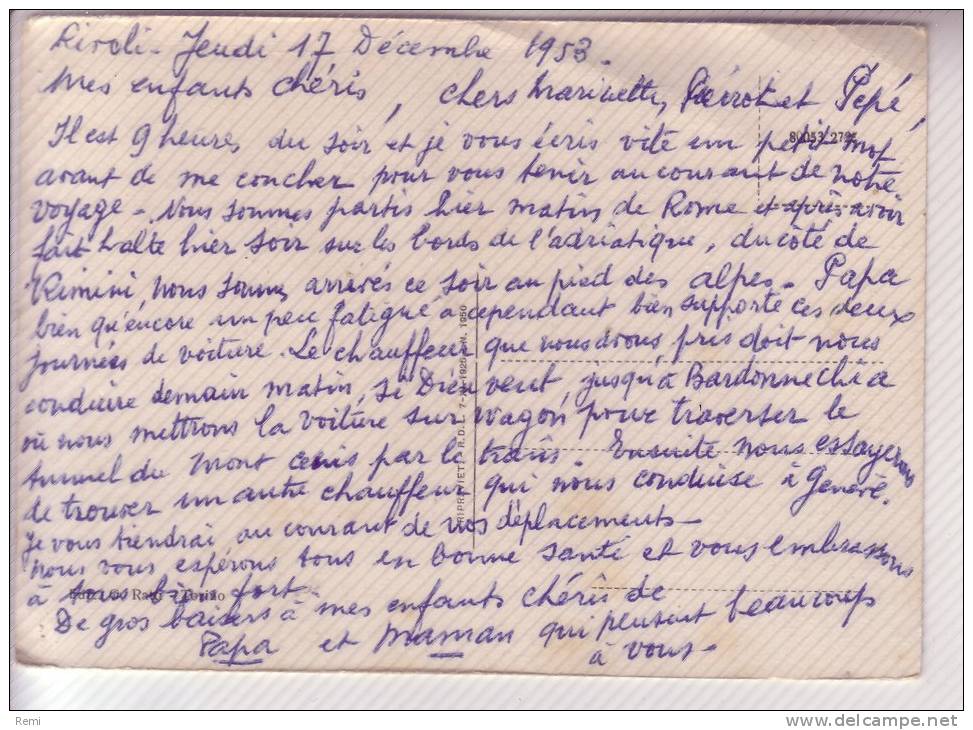 Rivoli - Jeudi 17 Décembre 1953.
Mes enfants chéris, chers Marinette, Pierrot et Pépé,
Il est 9 heures du soir et je vous écris vite un petit mot
80053 279
avant de me coucher pour vous tenir au courant de notre
voyage - Nous sommes partis hier matin de Rome et après avoir
fait halte hier soir sur les bords de l'adriatique, du côté de
Rimini, nous sommes arrivés ce soir au pied des alpes - Papa
bien qu'encore un peu fatigué a cependant bien supporté ces deux
journées de voiture. Le chauffeur que nous avons pris doit nous
conduire demain matin, si Dieu veut, jusqu'à Bardonnechia
où nous mettrons la voiture sur wagon pour traverser le
tunnel du Mont Cenis par le train. Ensuite nous essayerons
de trouver un autre chauffeur qui nous conduise à Genève.
Je vous tiendrai au courant de nos déplacements -
Nous vous espérons tous en bonne santé et vous embrassons
à tous bien fort.
De gros baisers à mes enfants chéris de
Papa et Maman qui pensent beaucoup
à vous -
Torino
Remi
delcampe.net